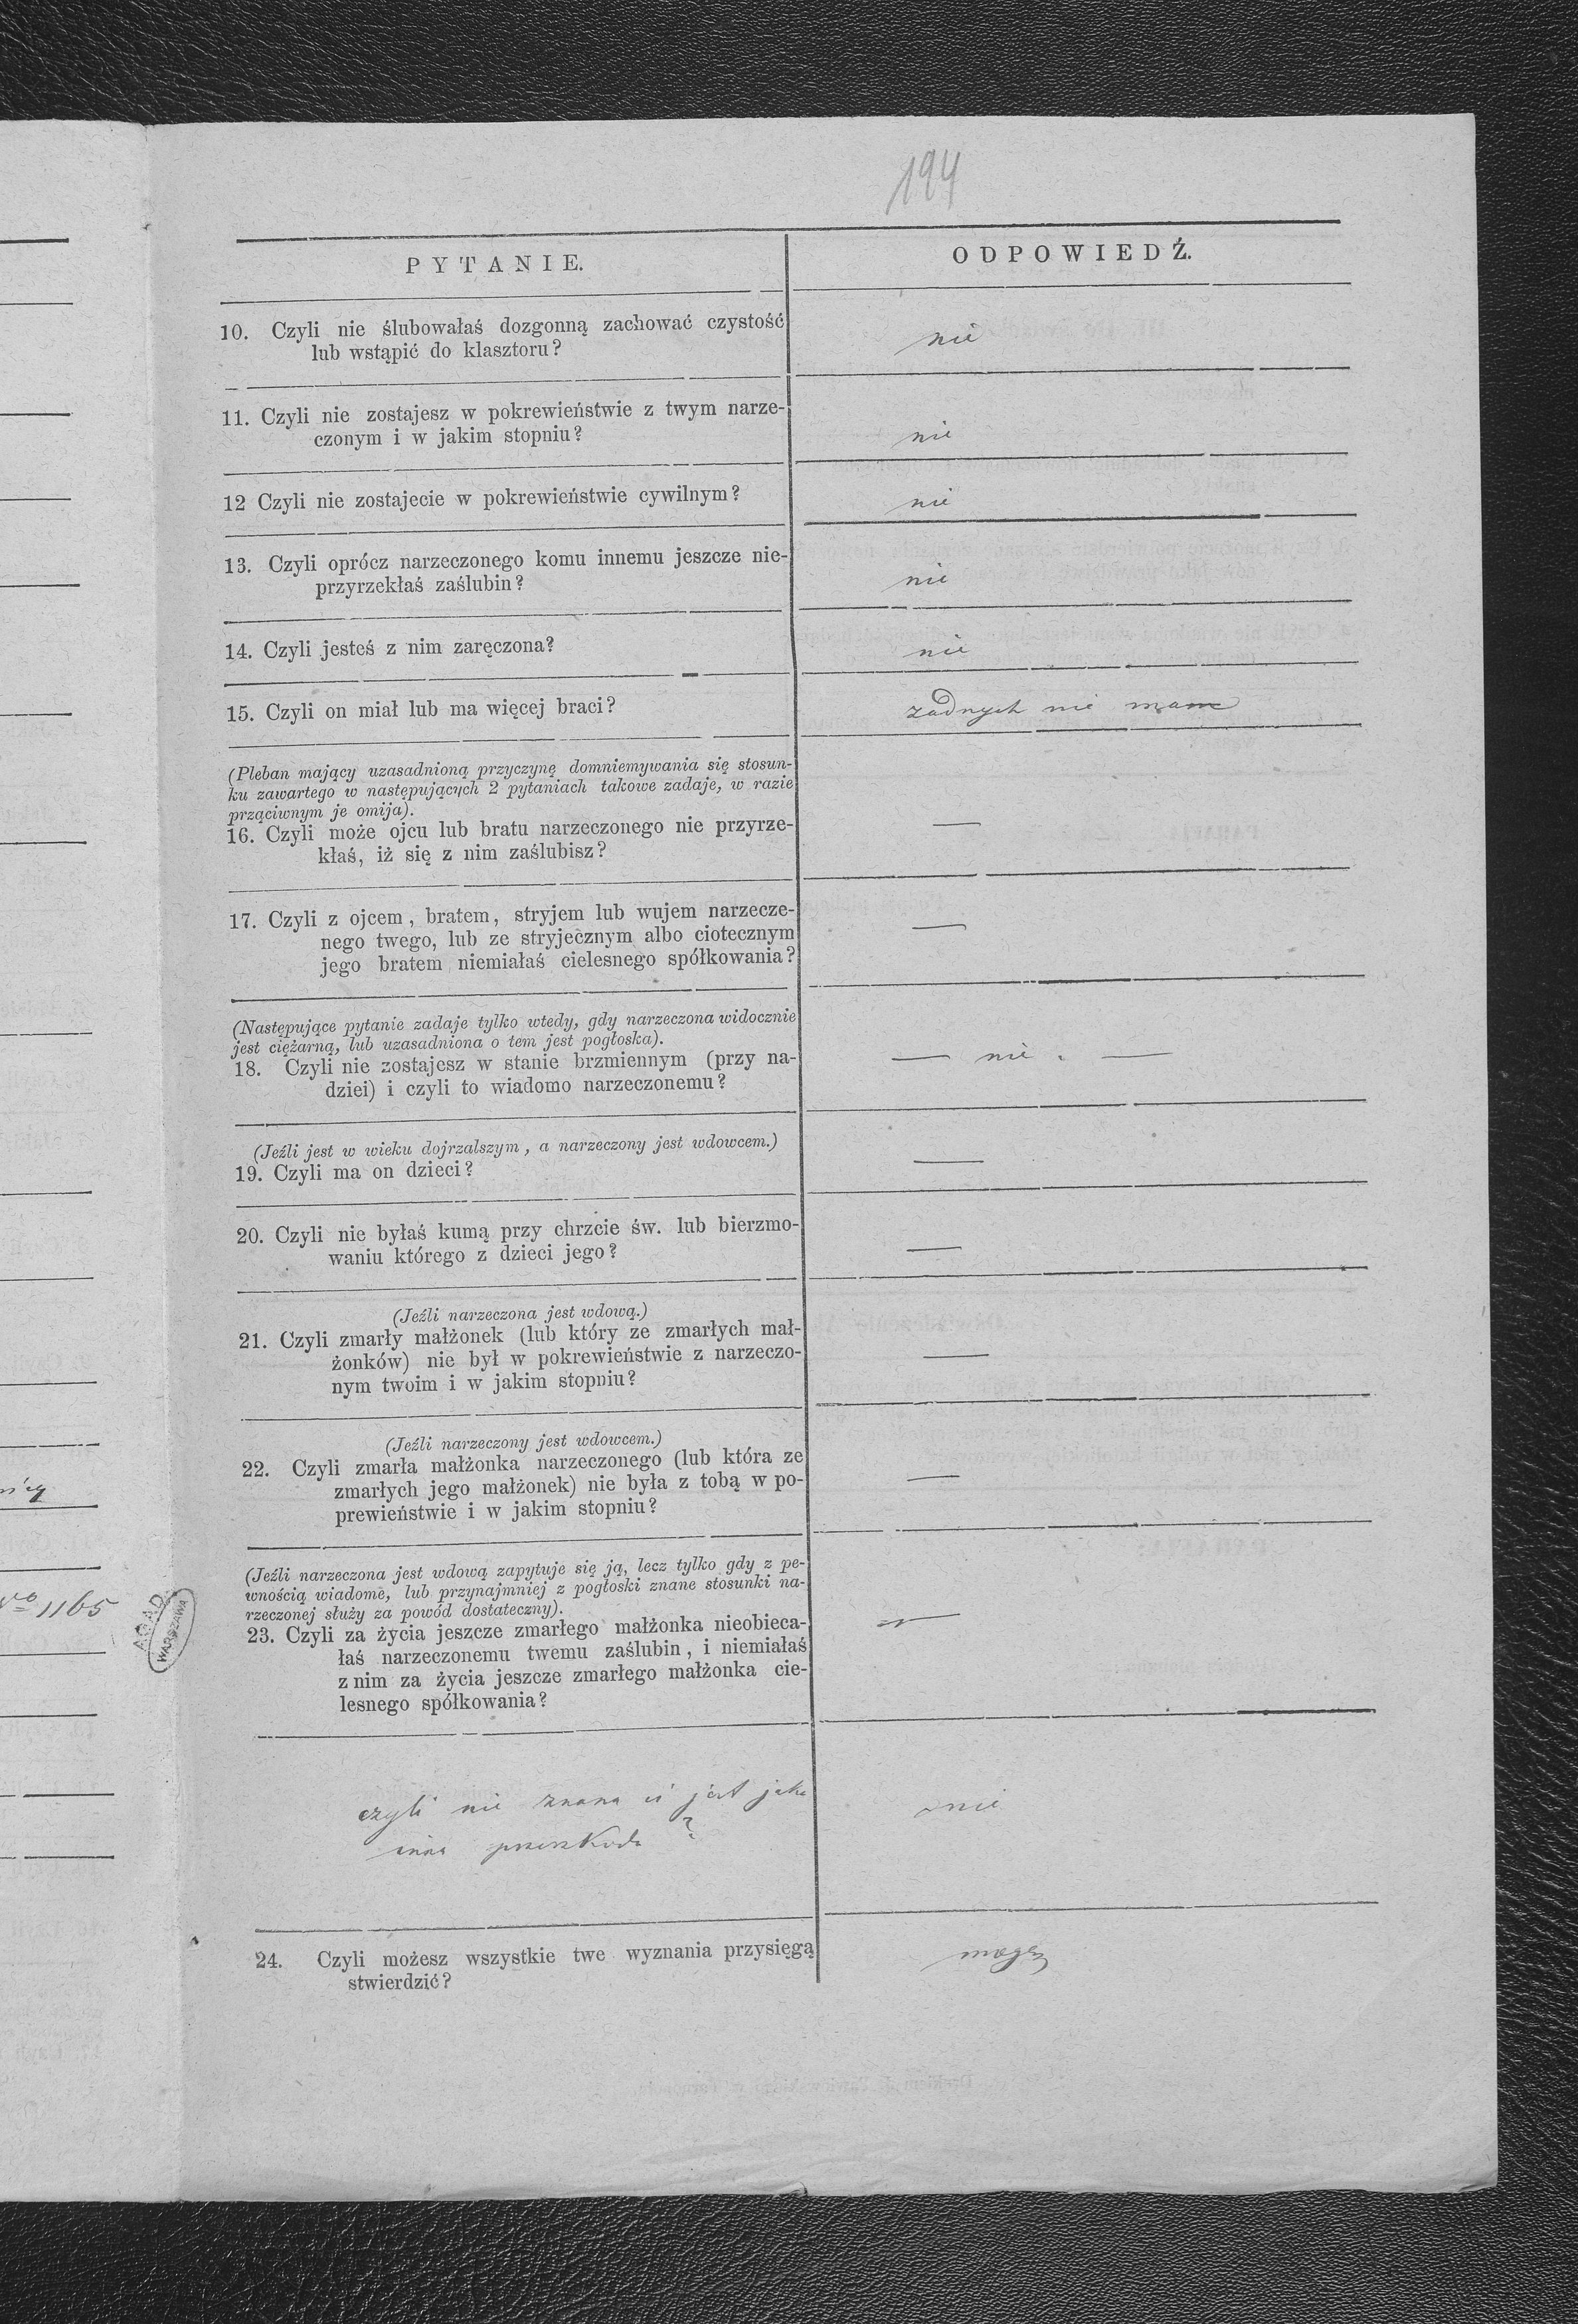 194
PYTANIE.
ODPOWIEDŹ.
10. Czyli nie ślubowałaś dozgonną zachować czystość
lub wstąpić do klasztoru?
nie
11. Czyli nie zostajesz w pokrewieństwie z twym narze-
czonym i w jakim stopniu?
nie
12 Czyli nie zostajecie w pokrewieństwie cywilnym?
nie
13. Czyli oprócz narzeczonego komu innemu jeszcze nie-
przyrzekłaś zaślubin?
nie
14. Czyli jesteś z nim zaręczona?
nie
15. Czyli on miał lub ma więcej braci?
żadnych nie ma
(Pleban mający uzasadnioną przyczynę domniemywania się stosun-
ku zawartego w następujących 2 pytaniach takowe zadaje, w razie
prząciwnym je omija).
16. Czyli może ojcu lub bratu narzeczonego nie przyrze-
kłaś, iż się z nim zaślubisz?
—
17. Czyli z ojcem, bratem, stryjem lub wujem narzecze-
nego twego, lub ze stryjecznym albo ciotecznym
jego bratem niemiałaś cielesnego spółkowania?
—
(Następujące pytanie zadaje tylko wtedy, gdy narzeczona widocznie
jest ciężarną, lub uzasadniona o tem jest pogłoska).
18. Czyli nie zostajesz w stanie brzmiennym (przy na-
dziei) i czyli to wiadomo narzeczonemu?
— nie . —
(Jeźli jest w wieku dojrzalszym, a narzeczony jest wdowcem.)
19. Czyli ma on dzieci?
—
20. Czyli nie byłaś kumą przy chrzcie św. lub bierzmo-
waniu którego z dzieci jego?
—
(Jeźli narzeczona jest wdową.)
21. Czyli zmarły małżonek (lub który ze zmarłych mał-
żonków) nie był w pokrewieństwie z narzeczo-
nym twoim i w jakim stopniu?
—
(Jeźli narzeczony jest wdowcem.)
22. Czyli zmarła małżonka narzeczonego (lub która ze
zmarłych jego małżonek) nie była z tobą w po-
prewieństwie i w jakim stopniu?
—
(Jeźli narzeczona jest wdową zapytuje się ją, lecz tylko gdy z pe-
wnością wiadome, lub przynajmniej z pogłoski znane stosunki na-
rzeczonej służy za powód dostateczny).
23. Czyli za życia jeszcze zmarłego małżonka nieobieca-
łaś narzeczonemu twemu zaślubin, i niemiałaś
z nim za życia jeszcze zmarłego małżonka cie-
lesnego spółkowania?
—
czyli nie znana ci jest jaka
inna przeszkoda ?
nie
24. Czyli możesz wszystkie twe wyznania przysięgą
stwierdzić?
mogę
No 1165
AGAD
WARSZAWA